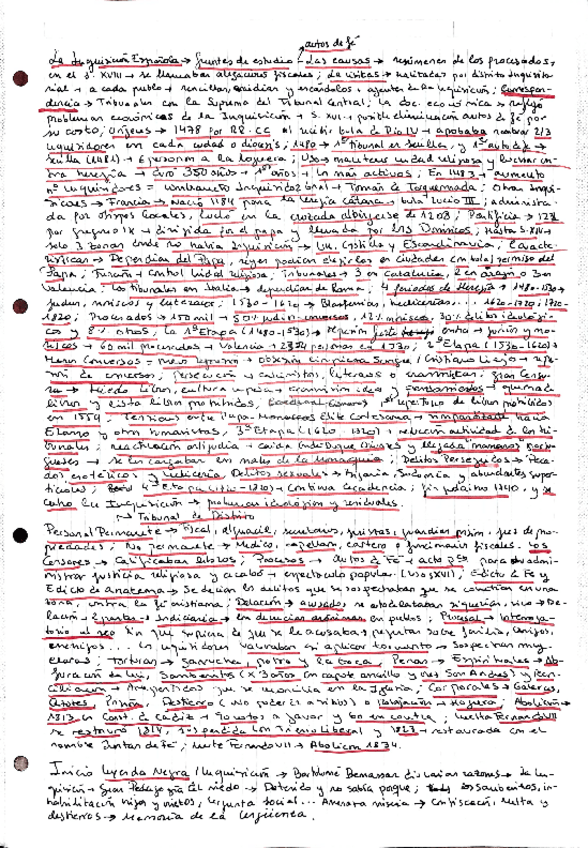 autos de fé
La Inquisición Española → fuentes de estudio → Las causas → resúmenes de los procesados,
en el S. XVIII → se llamaban alegaciones fiscales; La visitas → realizadas por distrito inquisito
rial → a cada pueblo → rencillas, envidias y escándalos + agentes de la Inquisición; Correspon-
dencia → Tribunales con la Suprema del Tribunal Central; La doc. económica → reflejó
problemas económicos de la Inquisición → S. XVII → posible eliminación autos de fe por
su costo; orígenes → 1478 por RR.CC al recibir bula de → aprobaba nombrar 2/3
inquisidores en cada ciudad o diócesis; 1480 → 1º Tribunal en Sevilla, y 1º auto de →
Sevilla (1481) → 6 personas a la hoguera; Uso → mantener unidad religiosa y luchar con-
tra herejía → duró 350 años → 1ºs años → los más activos. En 1483 → aumento
nº inquisidores = nombramiento Inquisidor → Tomás de Torquemada; Otras Inqui-
siciones → Francia → Nació 1184 para la herejía cátara → bula Lucio III; administra-
da por obispos locales, luchó en la cruzada albigense de 1208; Pontificia →
por Gregorio IX → dirigida por el papa y llevada por los Dominicos; Hasta S. XIV →
solo 3 zonas donde no había Inquisición → UK, Castilla y Escandinavia; Caracte-
rísticas → Dependían del Papa, reyes podían elegirlos en ciudades con bula/permiso del
Papa; Función → control unidad religiosa; Tribunales → 3 en Cataluña, 2 en Aragón o 3 en
Valencia. Los Tribunales en Italia → dependían de Roma; 4 periodos de Herejía → 1480-1530 →
judíos, moriscos y luteranos; 1530-1620 → Blasfemias, hechicerías... 1620-1720; 1720-
1820; Procesados → 150 mil → 50% judeo-conversos, 12% moriscos, 30% delitos ideológi-
cos y 8% otros; la 1ª Etapa (1480-1530) → represión contra → judíos y mo-
riscos → 60 mil procesados → Valencia → 2354 personas en 1530; 2ª Etapa (1530-1620) →
Menos Conversos → nuevo → obsesión limpieza Sangre / Cristiano Viejo →
de conversos; persecución → calvinistas, luteranos erasmistas; gran Censu-
ra → Miedo libros, cultura → transmisión ideas y → quema de
libros y lista libros prohibidos, 1º repertorio de libros prohibidos
en 1559; Tensiones entre Papa-Monarcas Élite Cortesana → hacia
Erasmo y otros humanistas; 3ª Etapa (1620-1720) → reducción actividad de los tri-
bunales; reactivación antijudía → caída Conde Duque Olivares y llegada "marranos" portu-
gueses → se les cargaban males de la monarquía; Delitos Perseguidos → Peca-
dos esotéricos → Hechicería, Delitos sexuales → bigamia, Sodomía y
; 4ª Etapa (1720-1820) → Continua decadencia; fin judaísmo 1740, y se
centró la Inquisición → problemas ideológicos y sexuales.
↳ Tribunal de Distrito
Personal Permanente → Fiscal, alguacil, secretarios, juristas, guardias prisión, juez de pro-
piedades; No permanente → Médico, capellán, cartero o funcionarios fiscales. Los
Censores → Calificaban Delitos; Procesos → Autos de Fe → acto pºs para admi-
nistrar justicia religiosa y acabó → espectáculo popular. (uso S XVI); Edicto de Fe y
Edicto de Anatema → Se decían los delitos que se sospechaban que se cometían en una
zona, contra la fe cristiana; Delación → acusados se autodelataban siguiendo, sino → De-
lación → 2 partes → Indiciaria → con denuncias anónimas en pueblos; Procesal → Interroga-
torio al reo sin que supiera de que se le acusaba → preguntas sobre familia, amigos,
enemigos... Los inquisidores valoraban si aplicar tormento → Sospechas muy
claras; Torturas → garrucha, potro y la toca. Penas → Espirituales → Ab-
juración de Leví, Sambenitos (x 3 años con capote amarillo y cruz San Andrés) y Recon-
ciliación → Arrepentidos que se reconcilia en la Iglesia; Corporales → Galeras,
Azotes, Prisión, Destierro ( ) o Relajación → Hoguera; Abolición →
1813 en Const. de Cádiz → 90 votos a favor y 60 en contra; vuelta Fernando VII
se restauró 1814. Suspendida con Trienio Liberal y 1823 → restaurada con el
nombre Juntas de fe; muerte Fernando VII → Abolición 1834.
Inicio leyenda Negra / Inquisición → Bartolomé Bennassar distintas razones → La Inqui-
sición → Gran Pedagogía del miedo → Detenido y no sabía porque; los Sambenitos, in-
habilitación hijos y nietos, vergüenza social... Amenaza miseria → Confiscación, multa y
destierros → Memoria de la vergüenza.